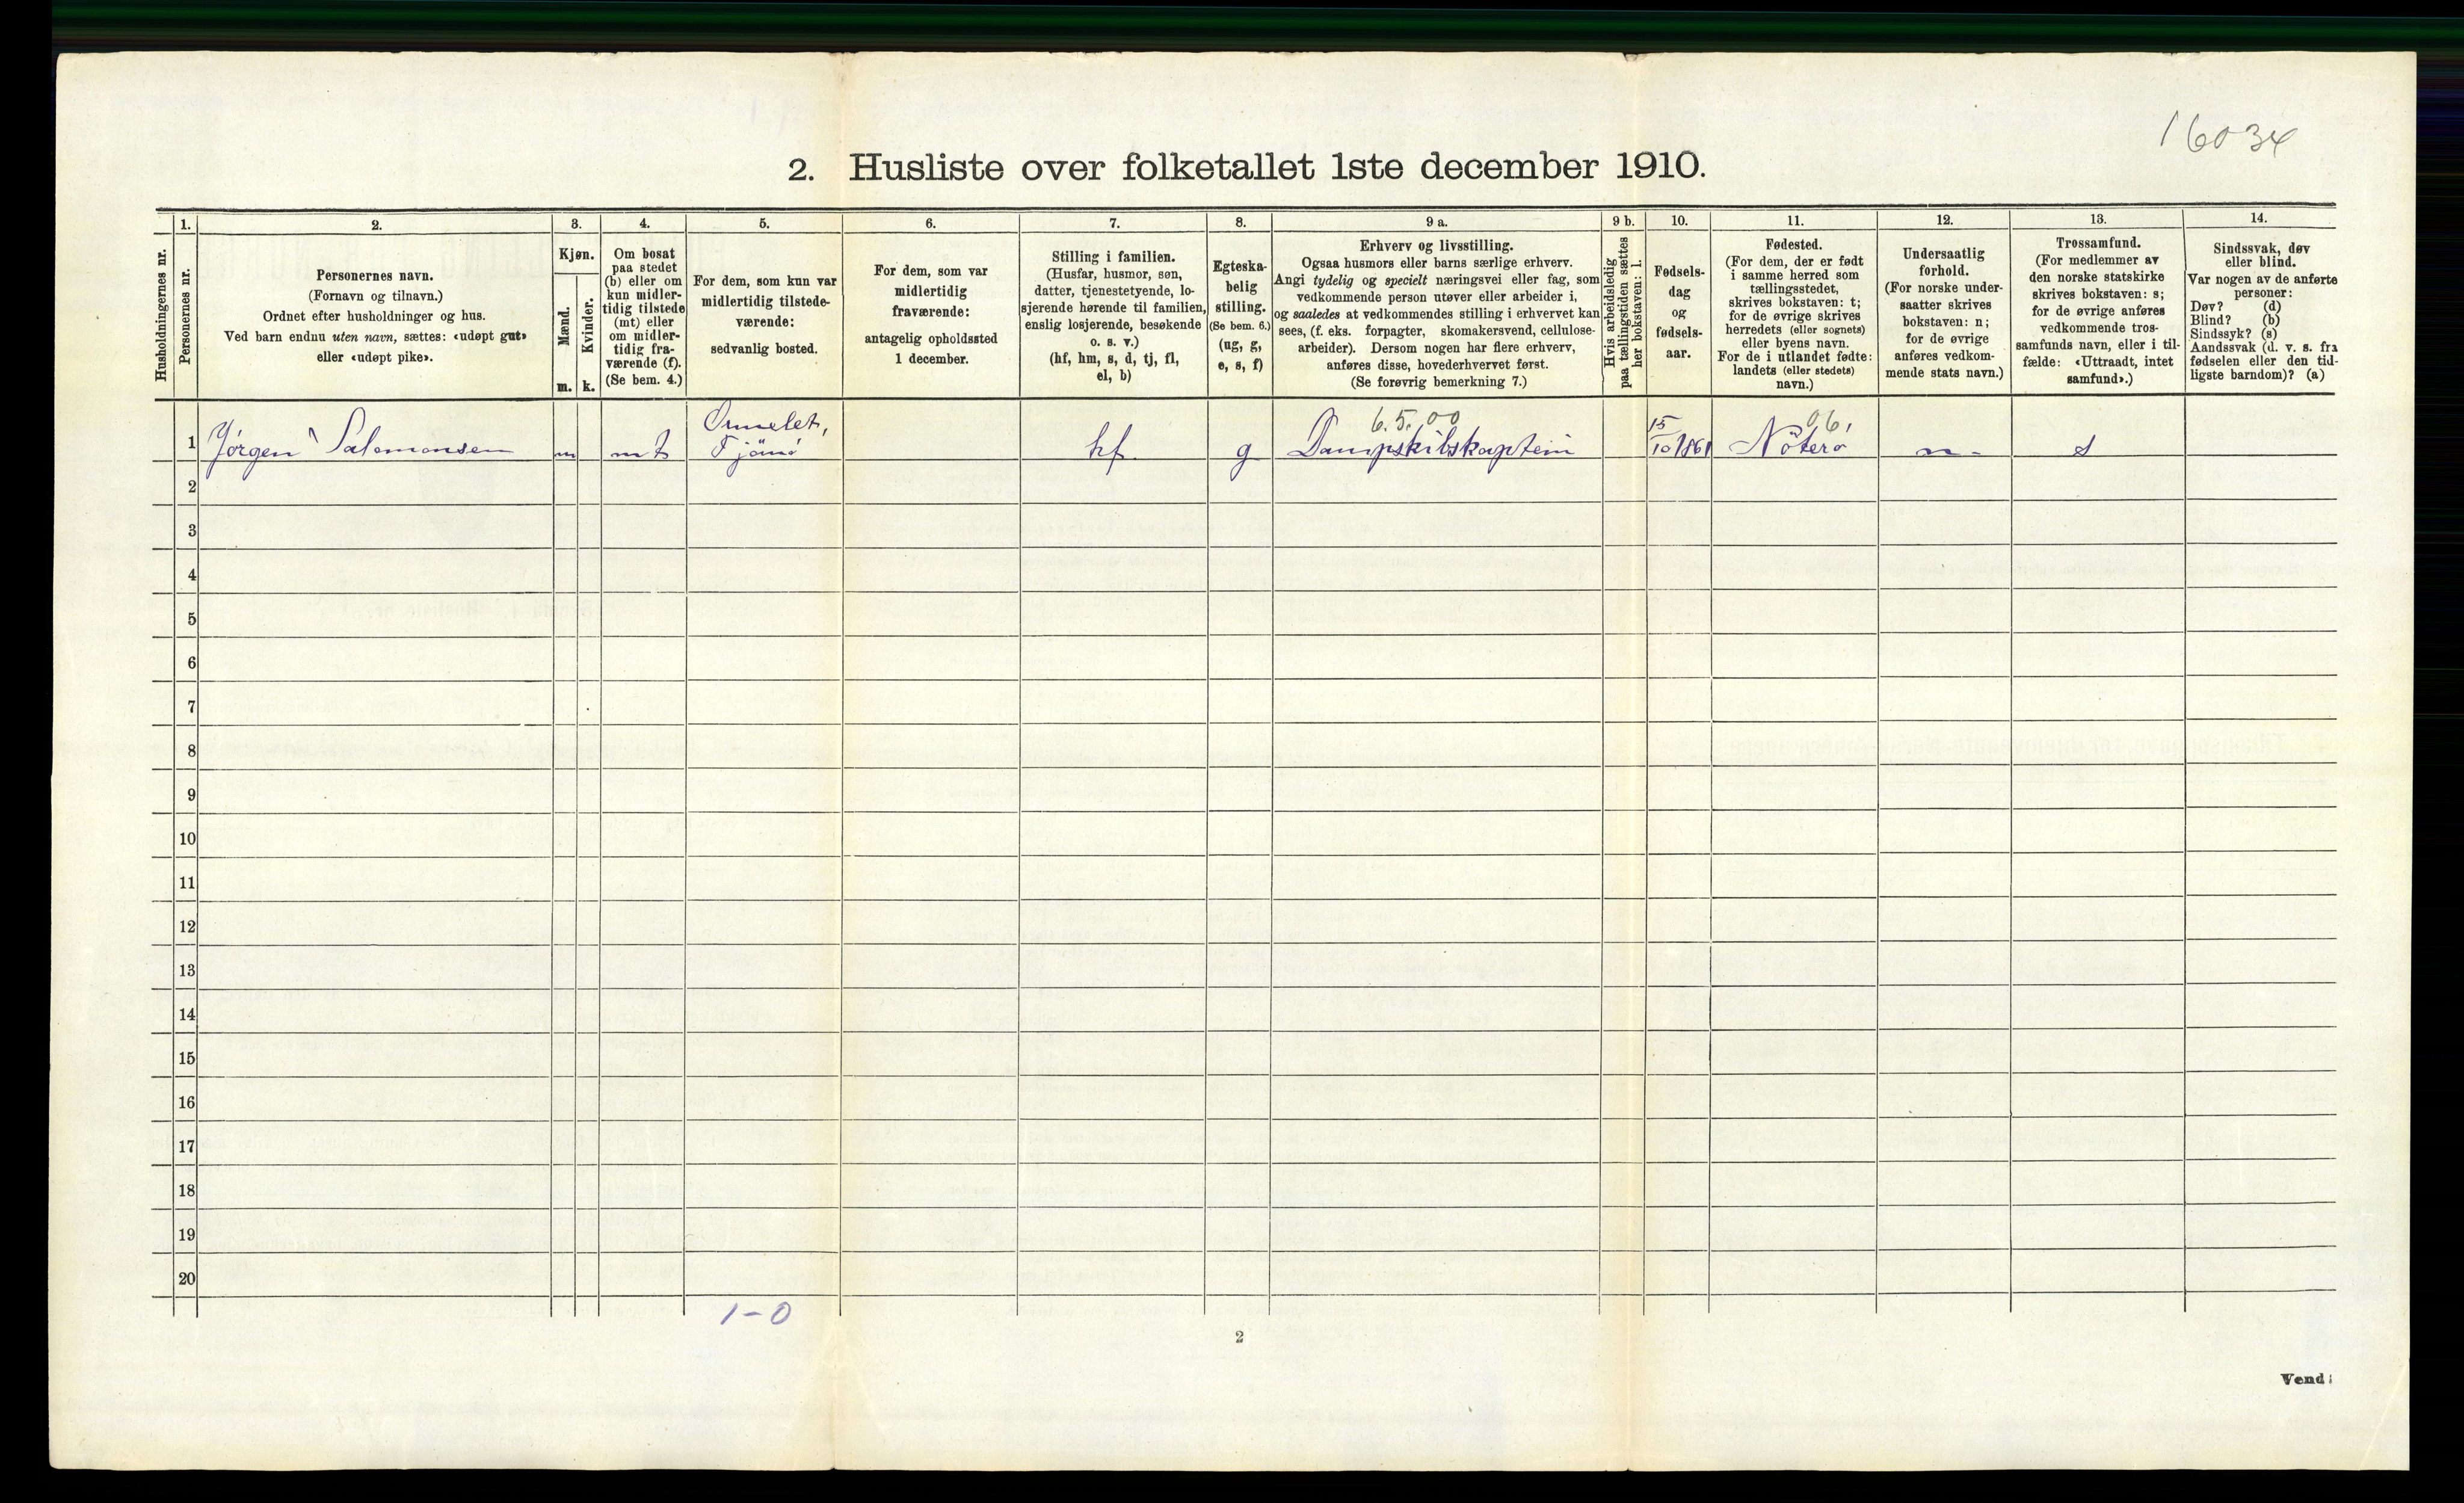 16034
2. Husliste over folketallet 1ste december 1910.
Husholdningernes nr.
1.
Personernes nr.
2.
Personernes navn.
(Fornavn og tilnavn.)
Ordnet efter husholdninger og hus.
Ved barn endnu uten navn, sættes: «udøpt gut»
eller «udøpt pike».
3.
Kjøn.
Mænd.
Kvinder.
m.
k.
4.
Om bosat
paa stedet
(b) eller om
kun midler-
tidig tilstede
(mt) eller
om midler-
tidig fra-
værende (f).
(Se bem. 4.)
5.
For dem, som kun var
midlertidig tilstede-
værende:
sedvanlig bosted.
6.
For dem, som var
midlertidig
fraværende:
antagelig opholdssted
1 december.
7.
Stilling i familien.
(Husfar, husmor, søn,
datter, tjenestetyende, lo-
sjerende hørende til familien,
enslig losjerende, besøkende
o. s. v.)
(hf, hm, s, d, tj, fl,
el, b)
8.
Egteska-
belig
stilling.
(Se bem. 6.)
(ug, g,
e, s, f)
9 a.
Erhverv og livsstilling.
Ogsaa husmors eller barns særlige erhverv.
Angi tydelig og specielt næringsvei eller fag, som
vedkommende person utøver eller arbeider i,
og saaledes at vedkommendes stilling i erhvervet kan
sees, (f. eks. forpagter, skomakersvend, cellulose-
arbeider). Dersom nogen har flere erhverv,
anføres disse, hovederhvervet først.
(Se forøvrig bemerkning 7.)
9 b.
Hvis arbeidsledig
paa tællingstiden sættes
her bokstaven: l.
10.
Fødsels-
dag
og
fødsels-
aar.
11.
Fødested.
(For dem, der er født
i samme herred som
tællingsstedet,
skrives bokstaven: t;
for de øvrige skrives
herredets (eller sognets)
eller byens navn.
For de i utlandet fødte:
landets (eller stedets)
navn.)
12.
Undersaatlig
forhold.
(For norske under-
saatter skrives
bokstaven: n;
for de øvrige
anføres vedkom-
mende stats navn.)
13.
Trossamfund.
(For medlemmer av
den norske statskirke
skrives bokstaven: s;
for de øvrige anføres
vedkommende tros-
samfunds navn, eller i til-
fælde: «Uttraadt, intet
samfund».)
14.
Sindssvak, døv
eller blind.
Var nogen av de anførte
personer:
Døv? (d)
Blind? (b)
Sindssyk? (s)
Aandssvak (d. v. s. fra
fødselen eller den tid-
ligste barndom)? (a)
1
Jørgen Salomonsen
m
mt
Ormelet,
Tjömö
hf.
g
6.5.00
Dampskibskaptein
15/10 1861
06,
Nøterø
n.
s
2
3
4
5
6
7
8
9
10
11
12
13
14
15
16
17
18
19
20
1-0
2
Vend!